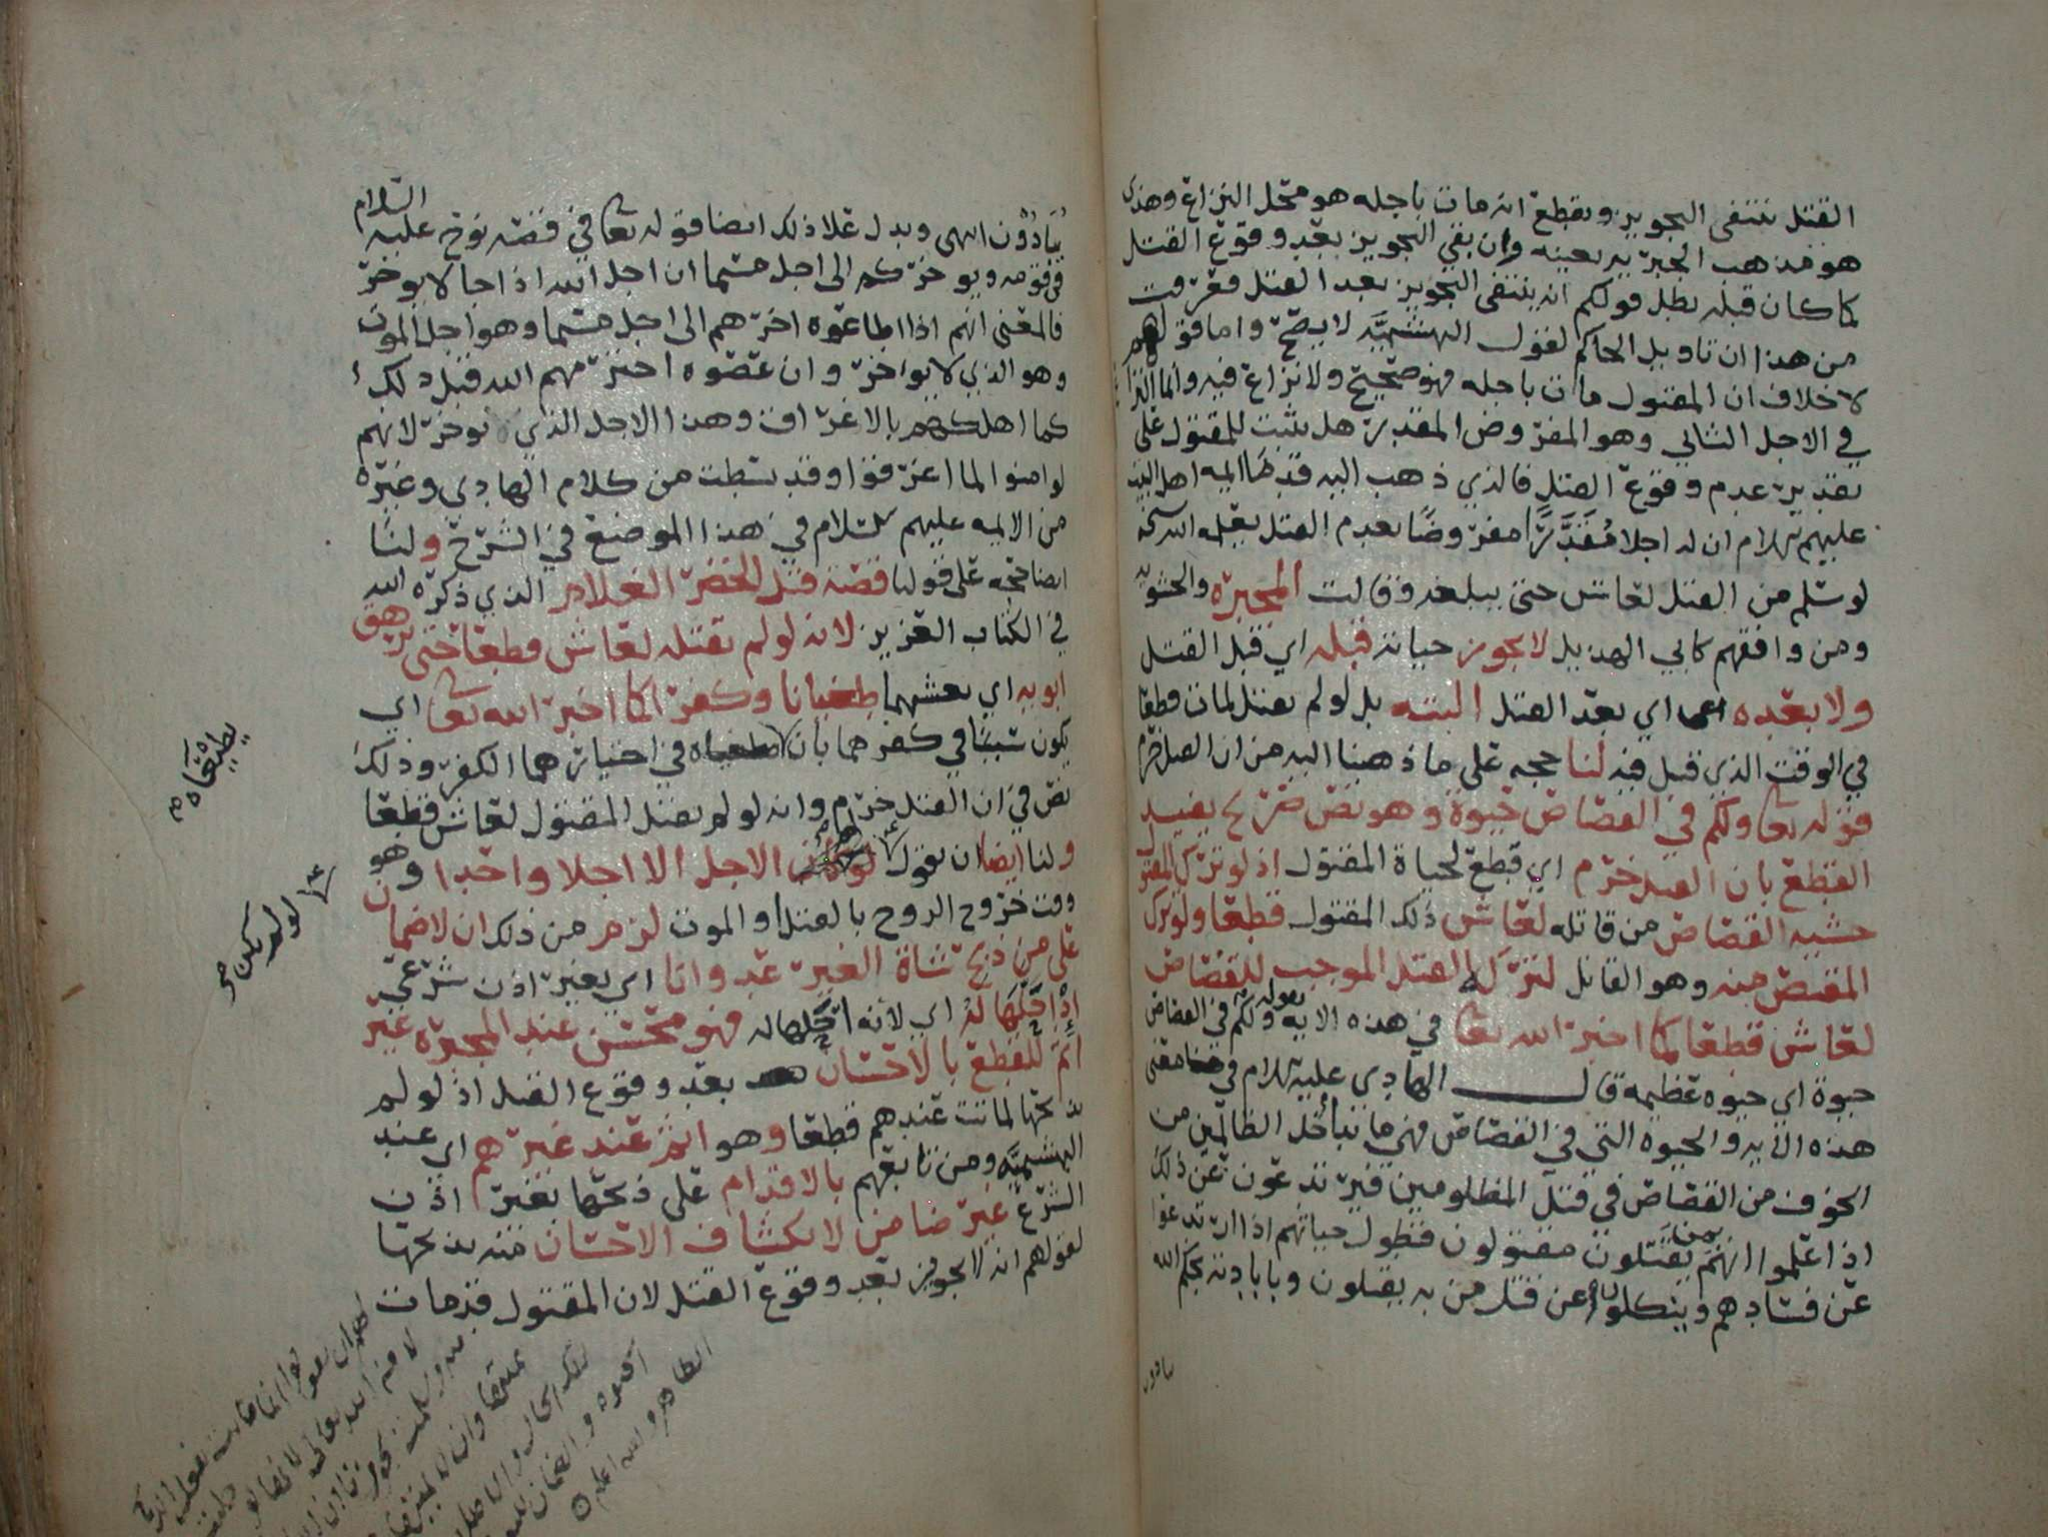 القتل ينتفى التجويز ويقطع انه مات باجله هو محل النزاع وهذى
هو مذهب المجبرة بعينه وان بقي التجويز بعد وقوع القتل
كما كان قبله بطل قولكم انه ينتفى التجويز بعد القتل فعرفت
من هذا ان تاويل الحاكم لقول البهشميه لا يصح واما قولهم
لا خلاف ان المقتول مات باجله فهو صحيح ولا نزاع فيه وانما النزاع
في الاجل الثاني وهو المفروض المقدر هل يثبت للمقتول على
تقدير عدم وقوع القتل فالذي ذهب اليه قدما ايمه اهل البيت
عليهم السلام ان له اجلا مقدرا مفروضا بعدم القتل يعلمه الله سبحانه
لو سلم من القتل لعاش حتى يبلغه وقالت المجبره والحشويه
ومن وافقهم كابي الهذيل لا يجوز حياته قبله اي قبل القتل
ولا بعده اي بعد القتل البته بل لو لم يقتل لمات قطعا
في الوقت الذي قتل فيه لنا حجه على ما ذهبنا اليه من ان القتل خرم
قوله تعا ولكم في القصاص حيوة وهو نص صريح يفيد
القطع بان القتل خرم اي قطع لحياة المقتول اذ لو ترك المقتول
خشية القصاص من قاتله لعاش ذلك المقتول قطعا ولو ترك
المقتص منه وهو القاتل لتركه القتل الموجب للقصاص
لعاش قطعا كما اخبر الله تعا في هذه الايه بقوله ولكم في القصاص
حيوة اي حيوه عظيمه قال الهادى عليه السلام في معنى
هذه الايه والحيوة التي في القصاص فهي ما يتداخل الظالمين من
الخوف من القصاص في قتل المظلومين فيرتدعون عن ذلك
اذا علموا انهم بمن يقتلون مقتولون فتطول حياتهم اذا ارتدعوا
عن فسادهم وينكلوا عن قتل من به يقتلون وبابادته بحكم الله
يبادون
يبادون انتهى ويدل على ذلك ايضا قوله تعا في قصة نوح عليه السلام
في قومه ويوخركم الى اجل مسما ان اجل الله اذا جا لا يوخر
فالمعنى انهم اذا اطاعوه اخرهم الى اجل مسما وهو اجل الموت
وهو الذي لا يواخر وان عصوه اخترمهم الله قبل ذلك
كما اهلكهم بالاغراق وهذا الاجل الذي يوخر لانهم
لو امنوا لما اغرقوا وقد بسطت من كلام الهادى وغيره
من الايمه عليهم السلام في هذا الموضع في الشرح ولنا
ايضا حجه على قولنا قصة قتل الخضر الغلام الذي ذكره الله
في الكتاب العزيز لانه لو لم يقتله لعاش قطعا حتى يرهق
ابويه اي يغشيهما طغيانا وكفرا كما اخبر الله تعا اي
يكون سببا في كفرهما بان يطيعاه في اختيارهما الكفر وذلك
نص في ان القتل خرم وانه لو لم يقتل المقتول لعاش قطعا
ولنا ايضا ان نقول لو لم يكن الاجل الا اجلا واحدا وهو
وقت خروج الروح بالقتل او الموت لزم من ذلك ان لا ضمان
على من ذبح شاة الغير عدوانا اي بغير اذن شرعي
اذ احلها له اي لانه احلها له فهو محسن عند المجبره غير
اثم للقطع بالاحسان بعد وقوع القتل اذ لو لم
يذبحها لماتت عندهم قطعا وهو اثم عند غيرهم اي عند
البهشميه ومن تابعهم بالاقدام على ذبحها بغير اذن
الشرع غير ضامن لانكشاف الاحسان منه بذبحها
لقولهم انه لا يجوز بعد وقوع القتل لان المقتول قد مات
يطيعاه
لو لم يكن صح
والله اعلم